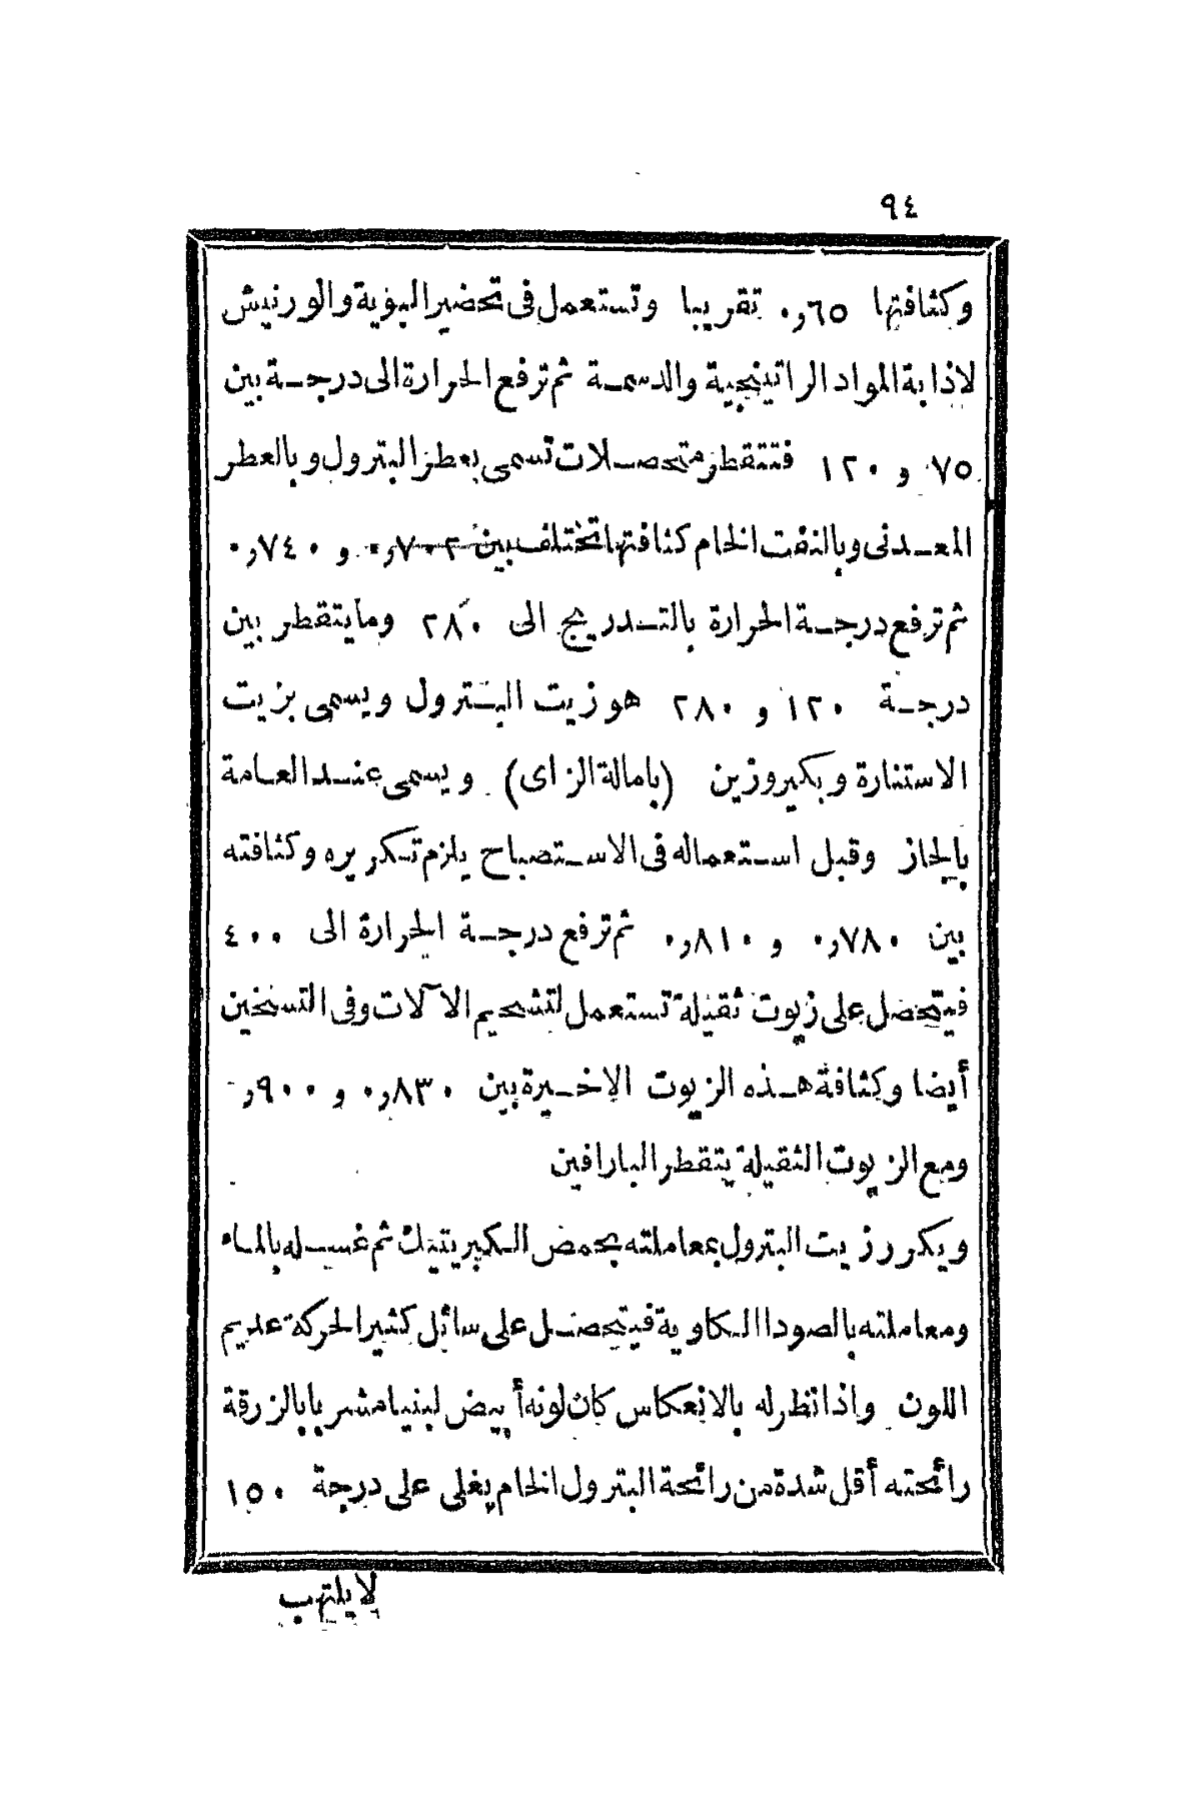 ٩٤
وكثافتها ٦٥ر٠ تقريبا وتستعمل فى تحضير البوية والورنيش
لاذابة المواد الراتينجية والدسمة ثم ترفع الحرارة الى درجة بين
٧٥ و ١٢٠ فتتقطر متحصلات تسمى بعطر البترول وبالعطر
المعدنى وبالنفت الخام كثافتها تختلف بين ٧٠٢ر٠ و ٧٤٠ر٠
ثم ترفع درجة الحرارة بالتدريج الى ٢٨٠ وما يتقطر بين
درجة ١٢٠ و ٢٨٠ هو زيت البترول ويسمى بزيت
الاستنارة وبكيروزين (بامالة الزاى) ويسمى عند العامة
بالجاز وقبل استعماله فى الاستصباح يلزم تكريره وكثافته
بين ٧٨٠ر٠ و ٨١٠ر٠ ثم ترفع درجة الحرارة الى ٤٠٠
فيتحصل على زيوت ثقيلة تستعمل لتشحيم الآلات وفى التسخين
أيضا وكثافة هذه الزيوت الاخيرة بين ٨٣٠ر٠ و ٩٠٠ر
ومع الزيوت الثقيلة يتقطر البارافين
ويكرر زيت البترول بمعاملته بحمض الكبريتيك ثم غسله بالماء
ومعاملته بالصودا الكاوية فيتحصل على سائل كثير الحركة عديم
اللون واذا نظر له بالانعكاس كان لونه أبيض لبنيا مشربا بالزرقة
رائحته أقل شدة من رائحة البترول الخام يغلى على درجة ١٥٠
لا يلتهب